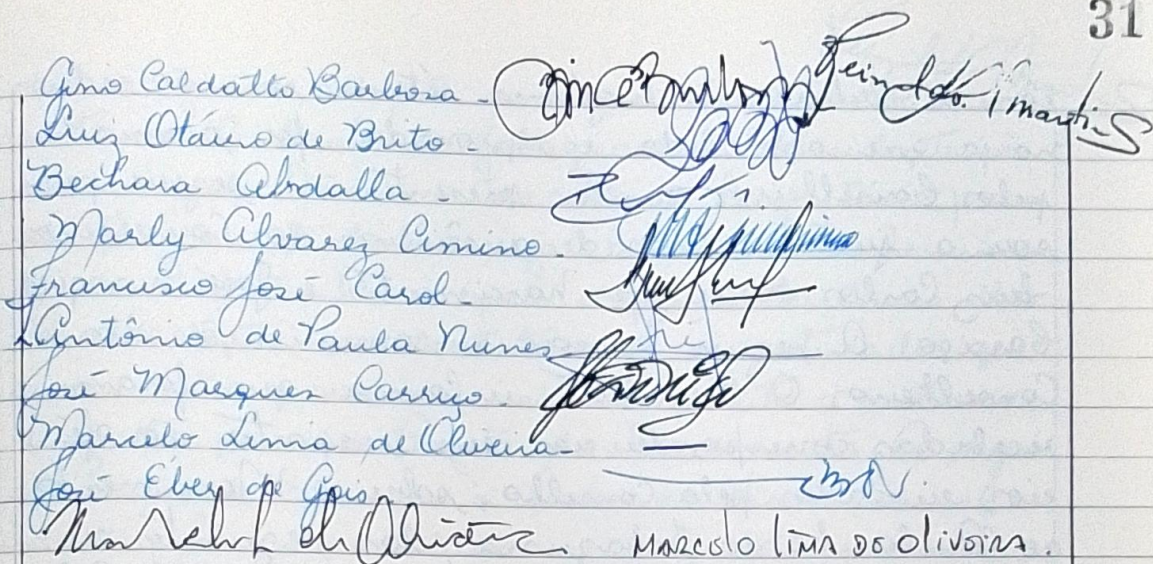 31
Gino Caldatto Barbosa - Reinaldo. Martins
Luiz Otávio de Brito -
Bechara Abdalla -
Marly Alvarez Cimino -
Francisco José Carol -
Antônio de Paula Nunes
José Marques Carriço -
Marcelo Lima de Oliveira -
José Eber de Gois
de Oliveira MARCELO LIMA DE OLIVEIRA.